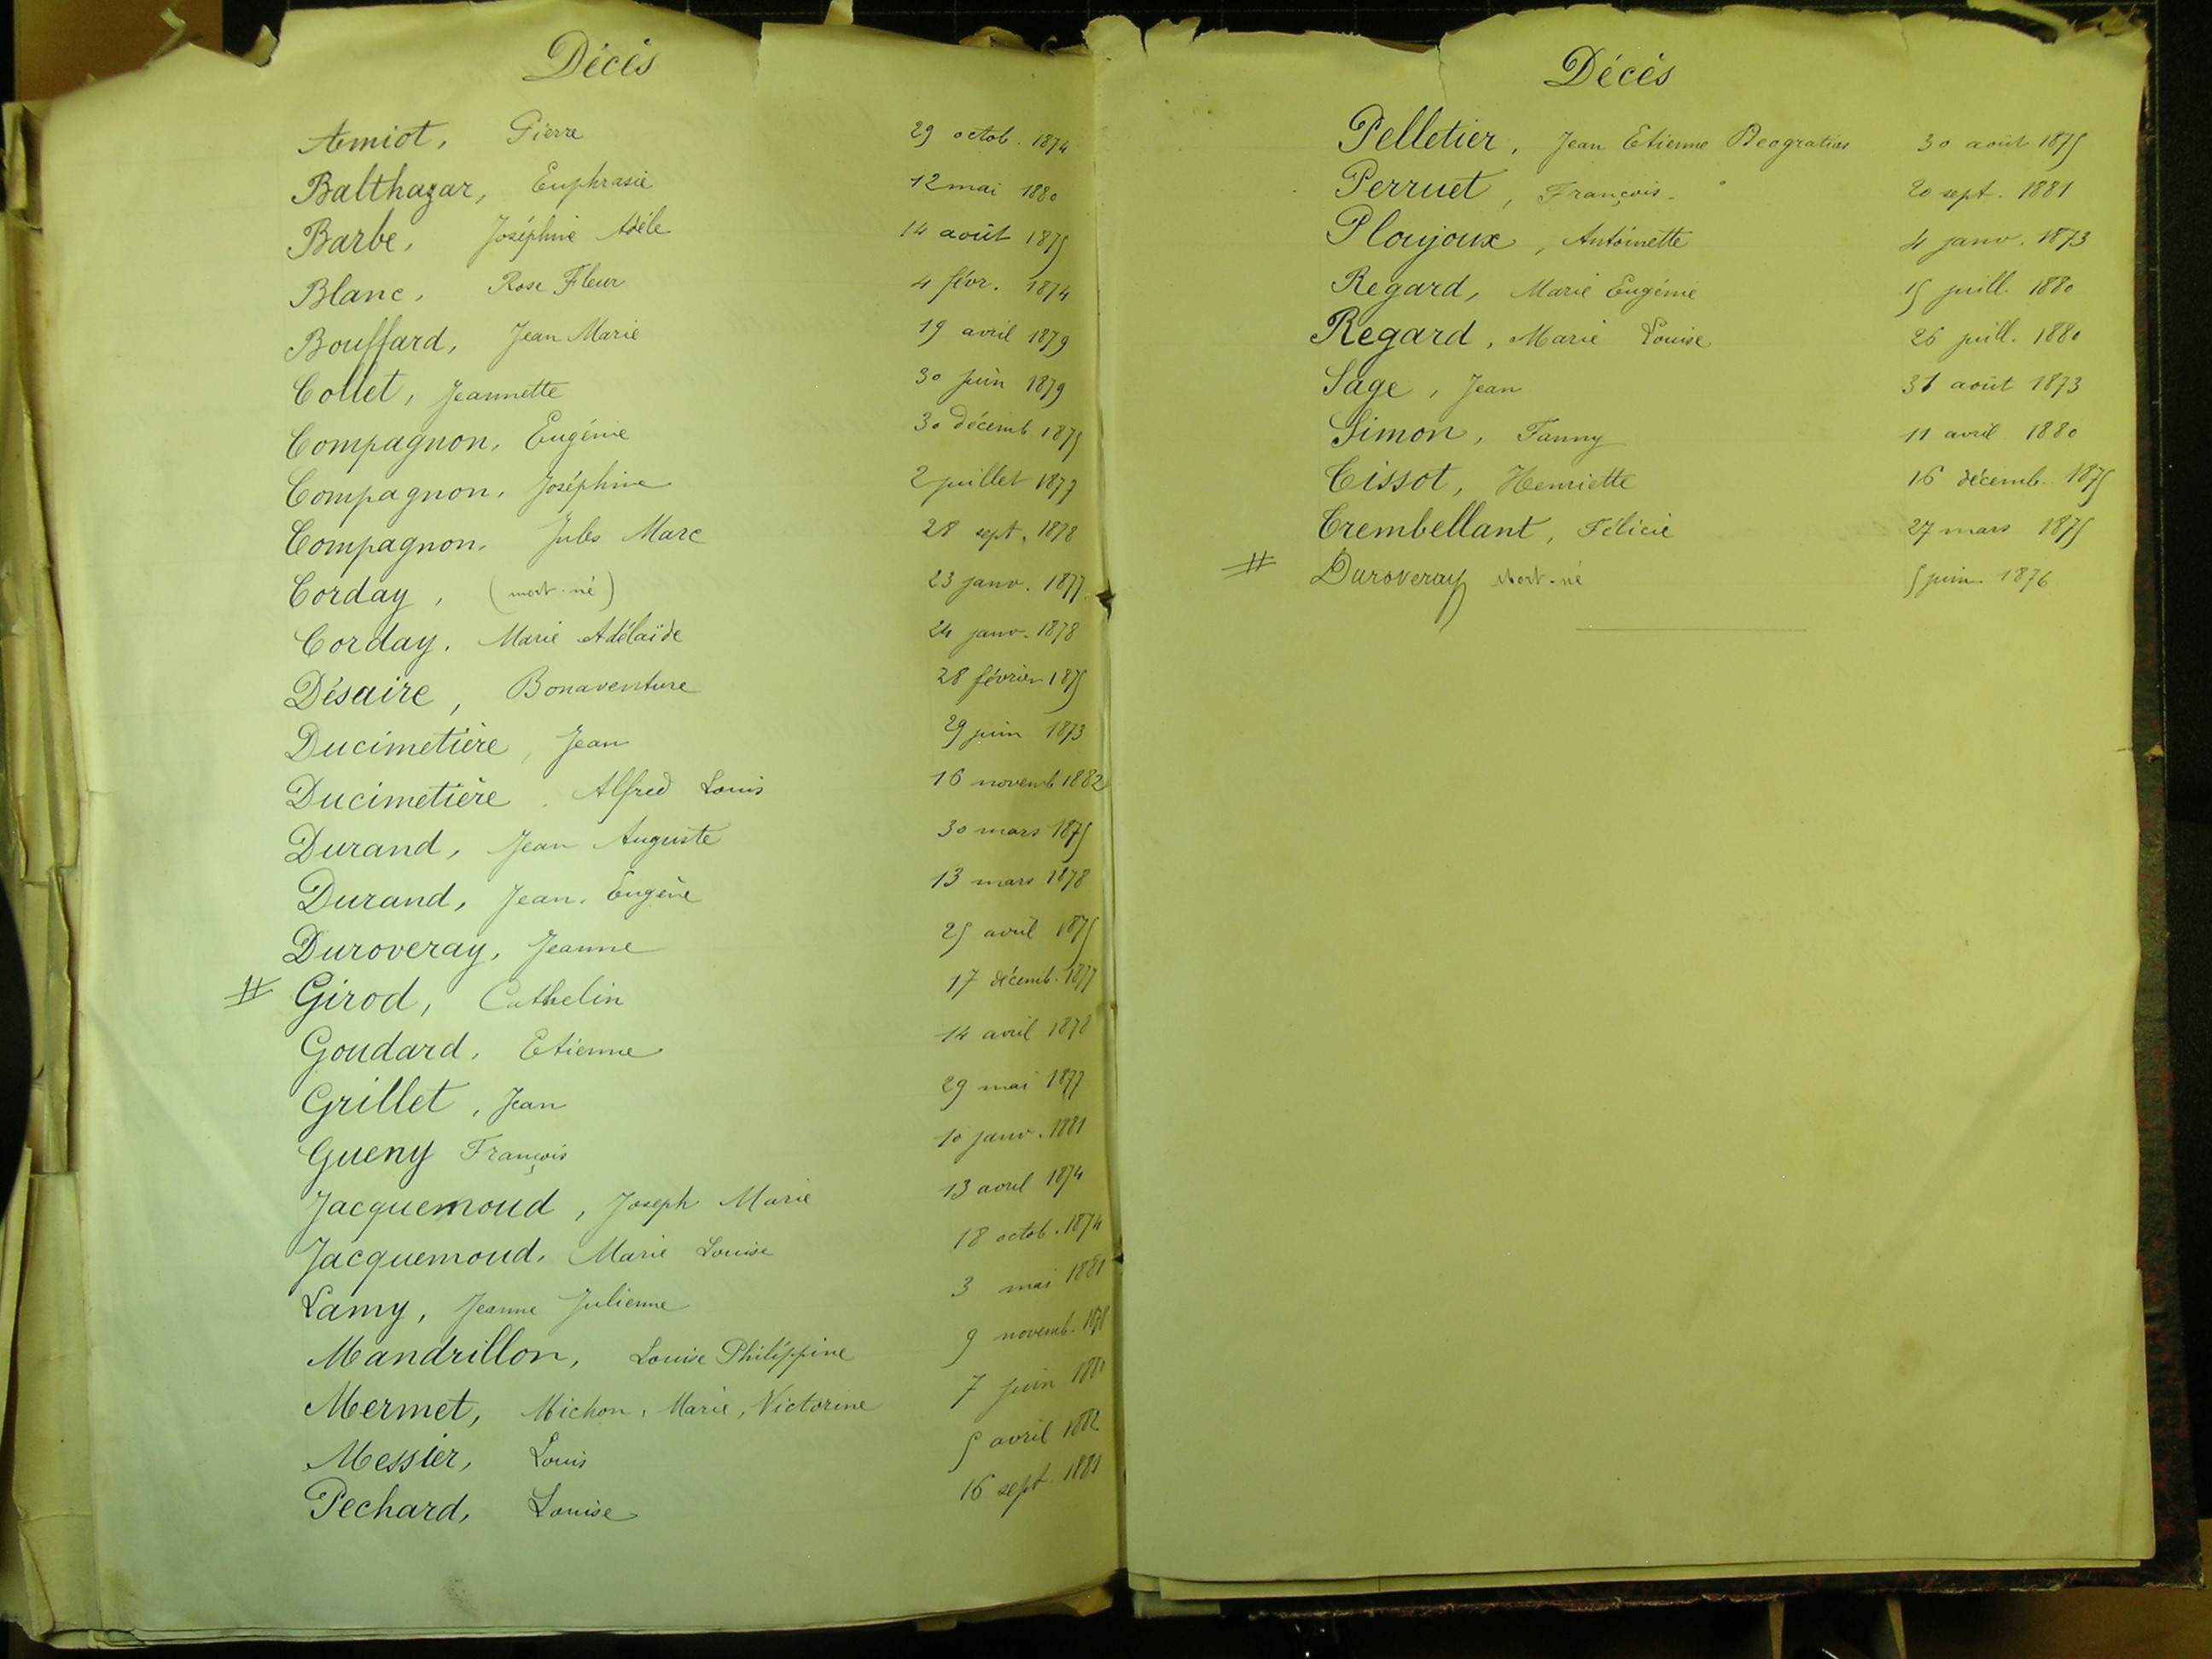 Décès
Amiot, Pierre 29 octob. 1874
Balthazar, Euphrasie 12 mai 1880
Barbe, Joséphine Adèle 14 août 1875
Blanc, Rose Fleur 4 févr. 1874
Bouffard, Jean Marie 19 avril 1879
Collet, Jeannette 30 juin 1879
Compagnon, Eugénie 30 décemb 1875
Compagnon, Joséphine 2 juillet 1877
Compagnon, Jules Marc 28 sept. 1878
Corday, (mort-né) 23 janv. 1877
Corday, Marie Adélaïde 24 janv. 1878
Désaire, Bonaventure 28 février 1875
Ducimetière, Jean 29 juin 1873
Ducimetière, Alfred Louis 16 novemb 1882
Durand, Jean Auguste 30 mars 1875
Durand, Jean Eugène 13 mars 1878
Duroveray, Jeanne 25 avril 1875
# Girod, Cathelin 17 décemb. 1877
Goudard, Etienne 14 avril 1878
Grillet, Jean 29 mai 1877
Gueny François 10 janv. 1881
Jacquemoud, Joseph Marie 13 avril 1874
Jacquemoud, Marie Louise 18 octob. 1874
Lamy, Jeanne Julienne 3 mai 1881
Mandrillon, Louise Philippine 9 novemb. 1878
Mermet, Michon, Marie, Victorine 7 juin
Messier, Louis 5 avril 1882
Pechard, Louise 16 sept. 1881
Décès
Pelletier, Jean Etienne Deogratias 30 août 1875
Perruet, François 20 sept. 1881
Ploujoux, Antoinette 4 janv. 1873
Regard, Marie Eugénie 15 juill. 1880
Regard, Marie Louise 26 juill. 1880
Sage, Jean 31 août 1873
Simon, Fanny 11 avril 1880
Tissot, Henriette 16 décemb. 1875
Trembellant, Félicie 27 mars 1875
# Duroveray Mort-né 5 juin 1876